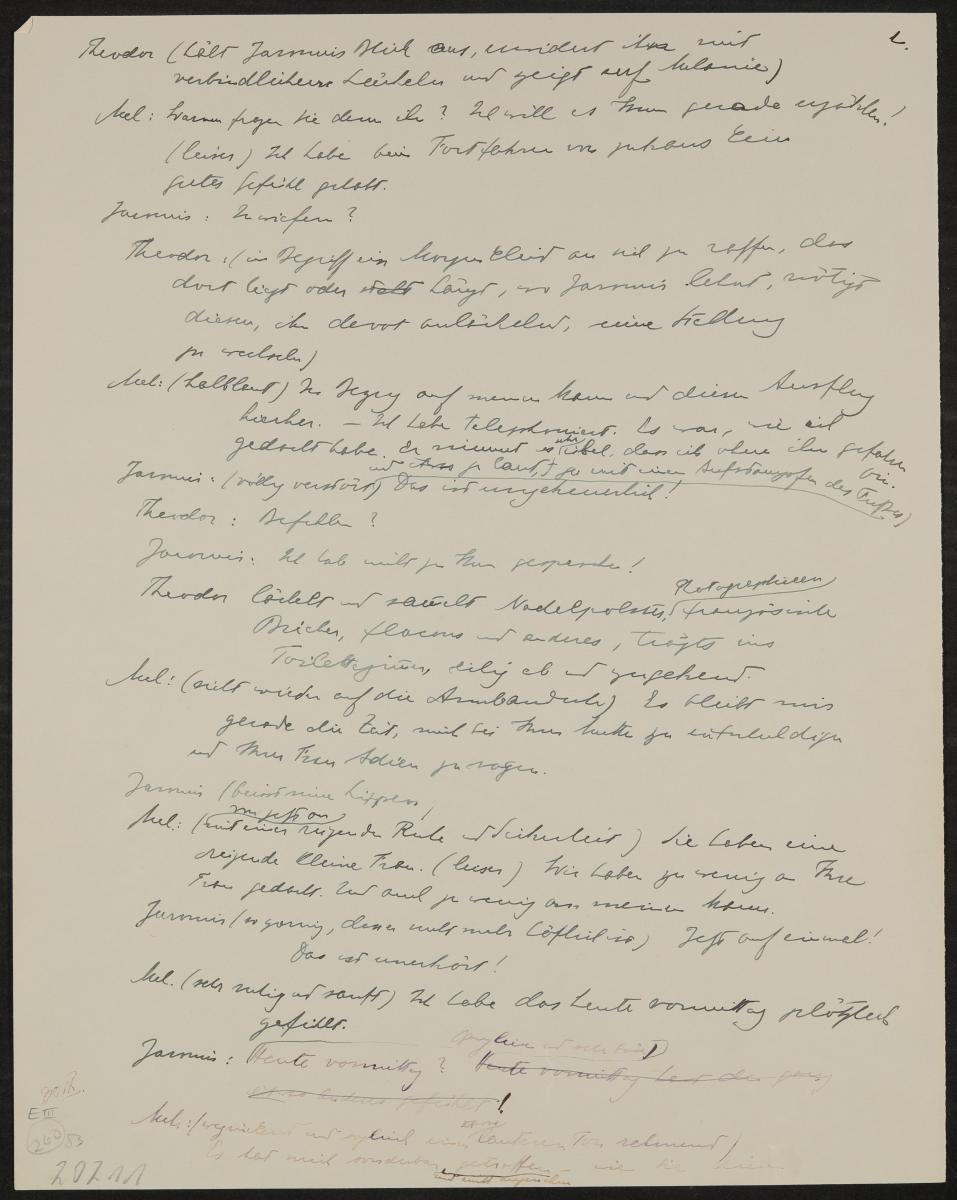 2.
Theodor (hält Jaromirs Blick aus, erwidert ihn mit
verbindlichem Lächeln und zeigt auf Melanie)
Mel: Warum fragen Sie denn ihn? Ich will es Ihnen gerade erzählen!
(leiser) Ich habe beim Fortfahren von zuhaus kein
gutes Gefühl gehabt.
Jaromir: Inwiefern?
Theodor: (im Begriff ein Morgenkleid an sich zu raffen, das
dort liegt oder steht hängt, wo Jaromir lehnt, nötigt
diesen, ihn devot anlächelnd, seine Stellung
zu wechseln)
Mel: (halblaut) In Bezug auf meinen Mann und diesen Ausflug
hierher. – Ich habe telephoniert. Es war, wie ich
gedacht habe. Er nimmt es sehr übel, dass ich ohne ihn gefahren bin.
und etwas zu laut, mit einem Aufstampfen des Fußes)
Jaromir: (völlig verstört) Das ist ungeheuerlich!
Theodor: Befehlen?
Jaromir: Ich hab nicht zu Ihnen gesprochen!
Photographieen
Theodor lächelt und sammelt Nadelpolster, französische
Bücher, flacons und anderes, trägts ins
Toilettezimmer, eilig ab und zugehend.
Mel: (sieht wieder auf die Armbanduhr) Es bleibt mir
gerade die Zeit, mich bei Ihrer Mutter zu entschuldigen
und Ihrer Frau Adieu zu sagen.
Jaromir (beisst seine Lippen)
von jetzt an
Mel: (mit einer reizenden Ruhe und Sicherheit) Sie haben eine
reizende kleine Frau. (leiser) Wir haben zu wenig an Ihre
Frau gedacht. Und auch zu wenig an meinen Mann.
Jaromir (so zornig, dass er nicht mehr höflich ist) Jetzt auf einmal!
Das ist unerhört!
Mel. (sehr ruhig und sanft) Ich habe das heute vormittag plötzlich
gefühlt.
Jaromir: Heute vormittag? Heute vormittag
!
Mel: und einen Ton nehmend)
Es hat mich sonderbar getroffen – wie Sie
E III
240
83
20211